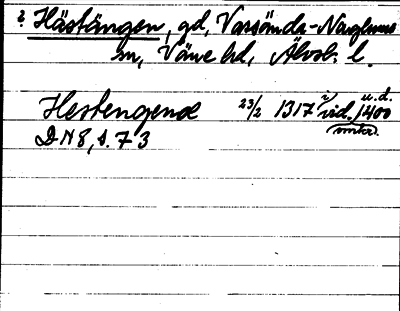 ? Hästängen, gd, Vassända-Naglums
sn, Väne hd, Älvsb. l.
Hestengenæ 23/2 1317 i vid. u.d. 1400
DN 8, s. 73